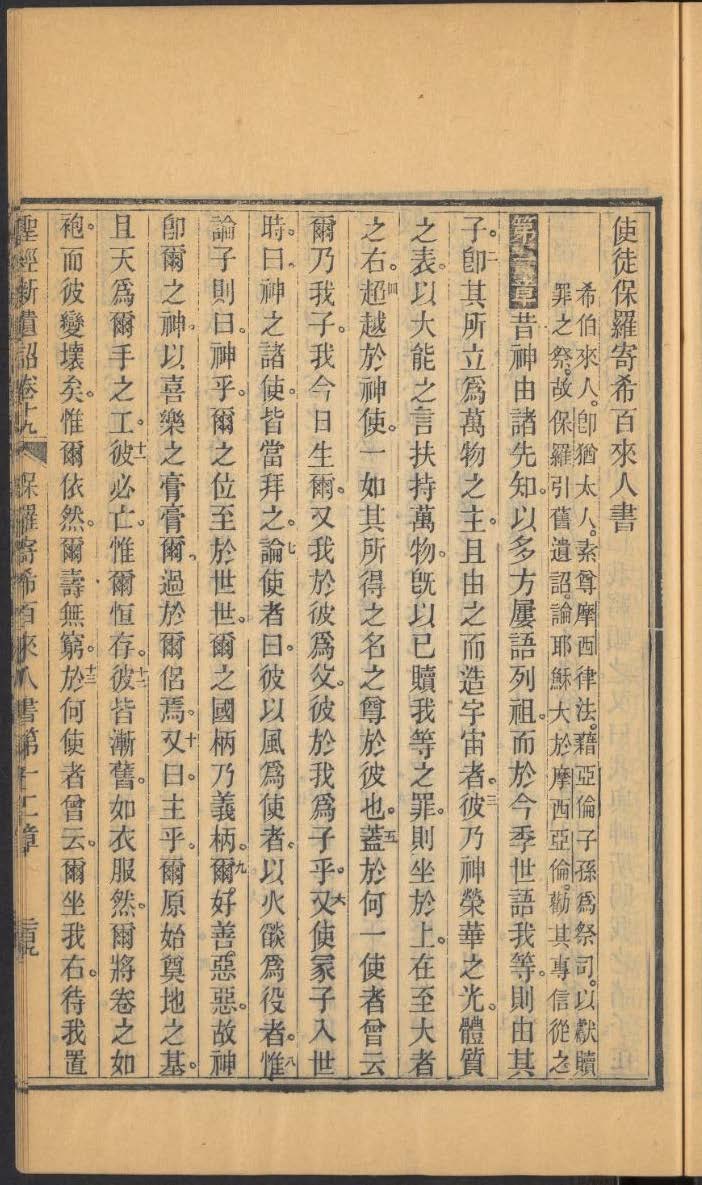 使徒保羅寄希百來人書
希伯來人。卽猶太人。素尊摩西律法。藉亞倫子孫爲祭司。以獻贖
罪之祭。故保羅引舊遺詔。論耶穌大於摩西亞倫。勸其專信從之
第一章昔神由諸先知。以多方屢語列祖。而於今季世語我等。則由其
子。二卽其所立爲萬物之主。且由之而造宇宙者。三彼乃神榮華之光。體質
之表。以大能之言扶持萬物。旣以己贖我等之罪。則坐於上。在至大者
之右。四超越於神使。一如其所得之名之尊於彼也。五蓋於何一使者曾云
爾乃我子。我今日生爾。又我於彼爲父。彼於我爲子乎。六又使冢子入世
時。曰、神之諸使。皆當拜之。七論使者曰。彼以風爲使者。以火燄爲役者。八惟
論子則曰。神乎。爾之位至於世世。爾之國柄乃義柄。九爾好善。惡惡。故神
卽爾之神。以喜樂之膏膏爾。過於爾侶焉。十又曰。主乎。爾原始奠地之基。
且天爲爾手之工。十一彼必亡。惟爾恒存。十二彼皆漸舊。如衣服然。爾將卷之如
袍。而彼變壞矣。惟爾依然。爾壽無窮。十三於何使者曾云。爾坐我右。待我置
聖經新遺詔卷十九 保羅寄希百來人書第一二章